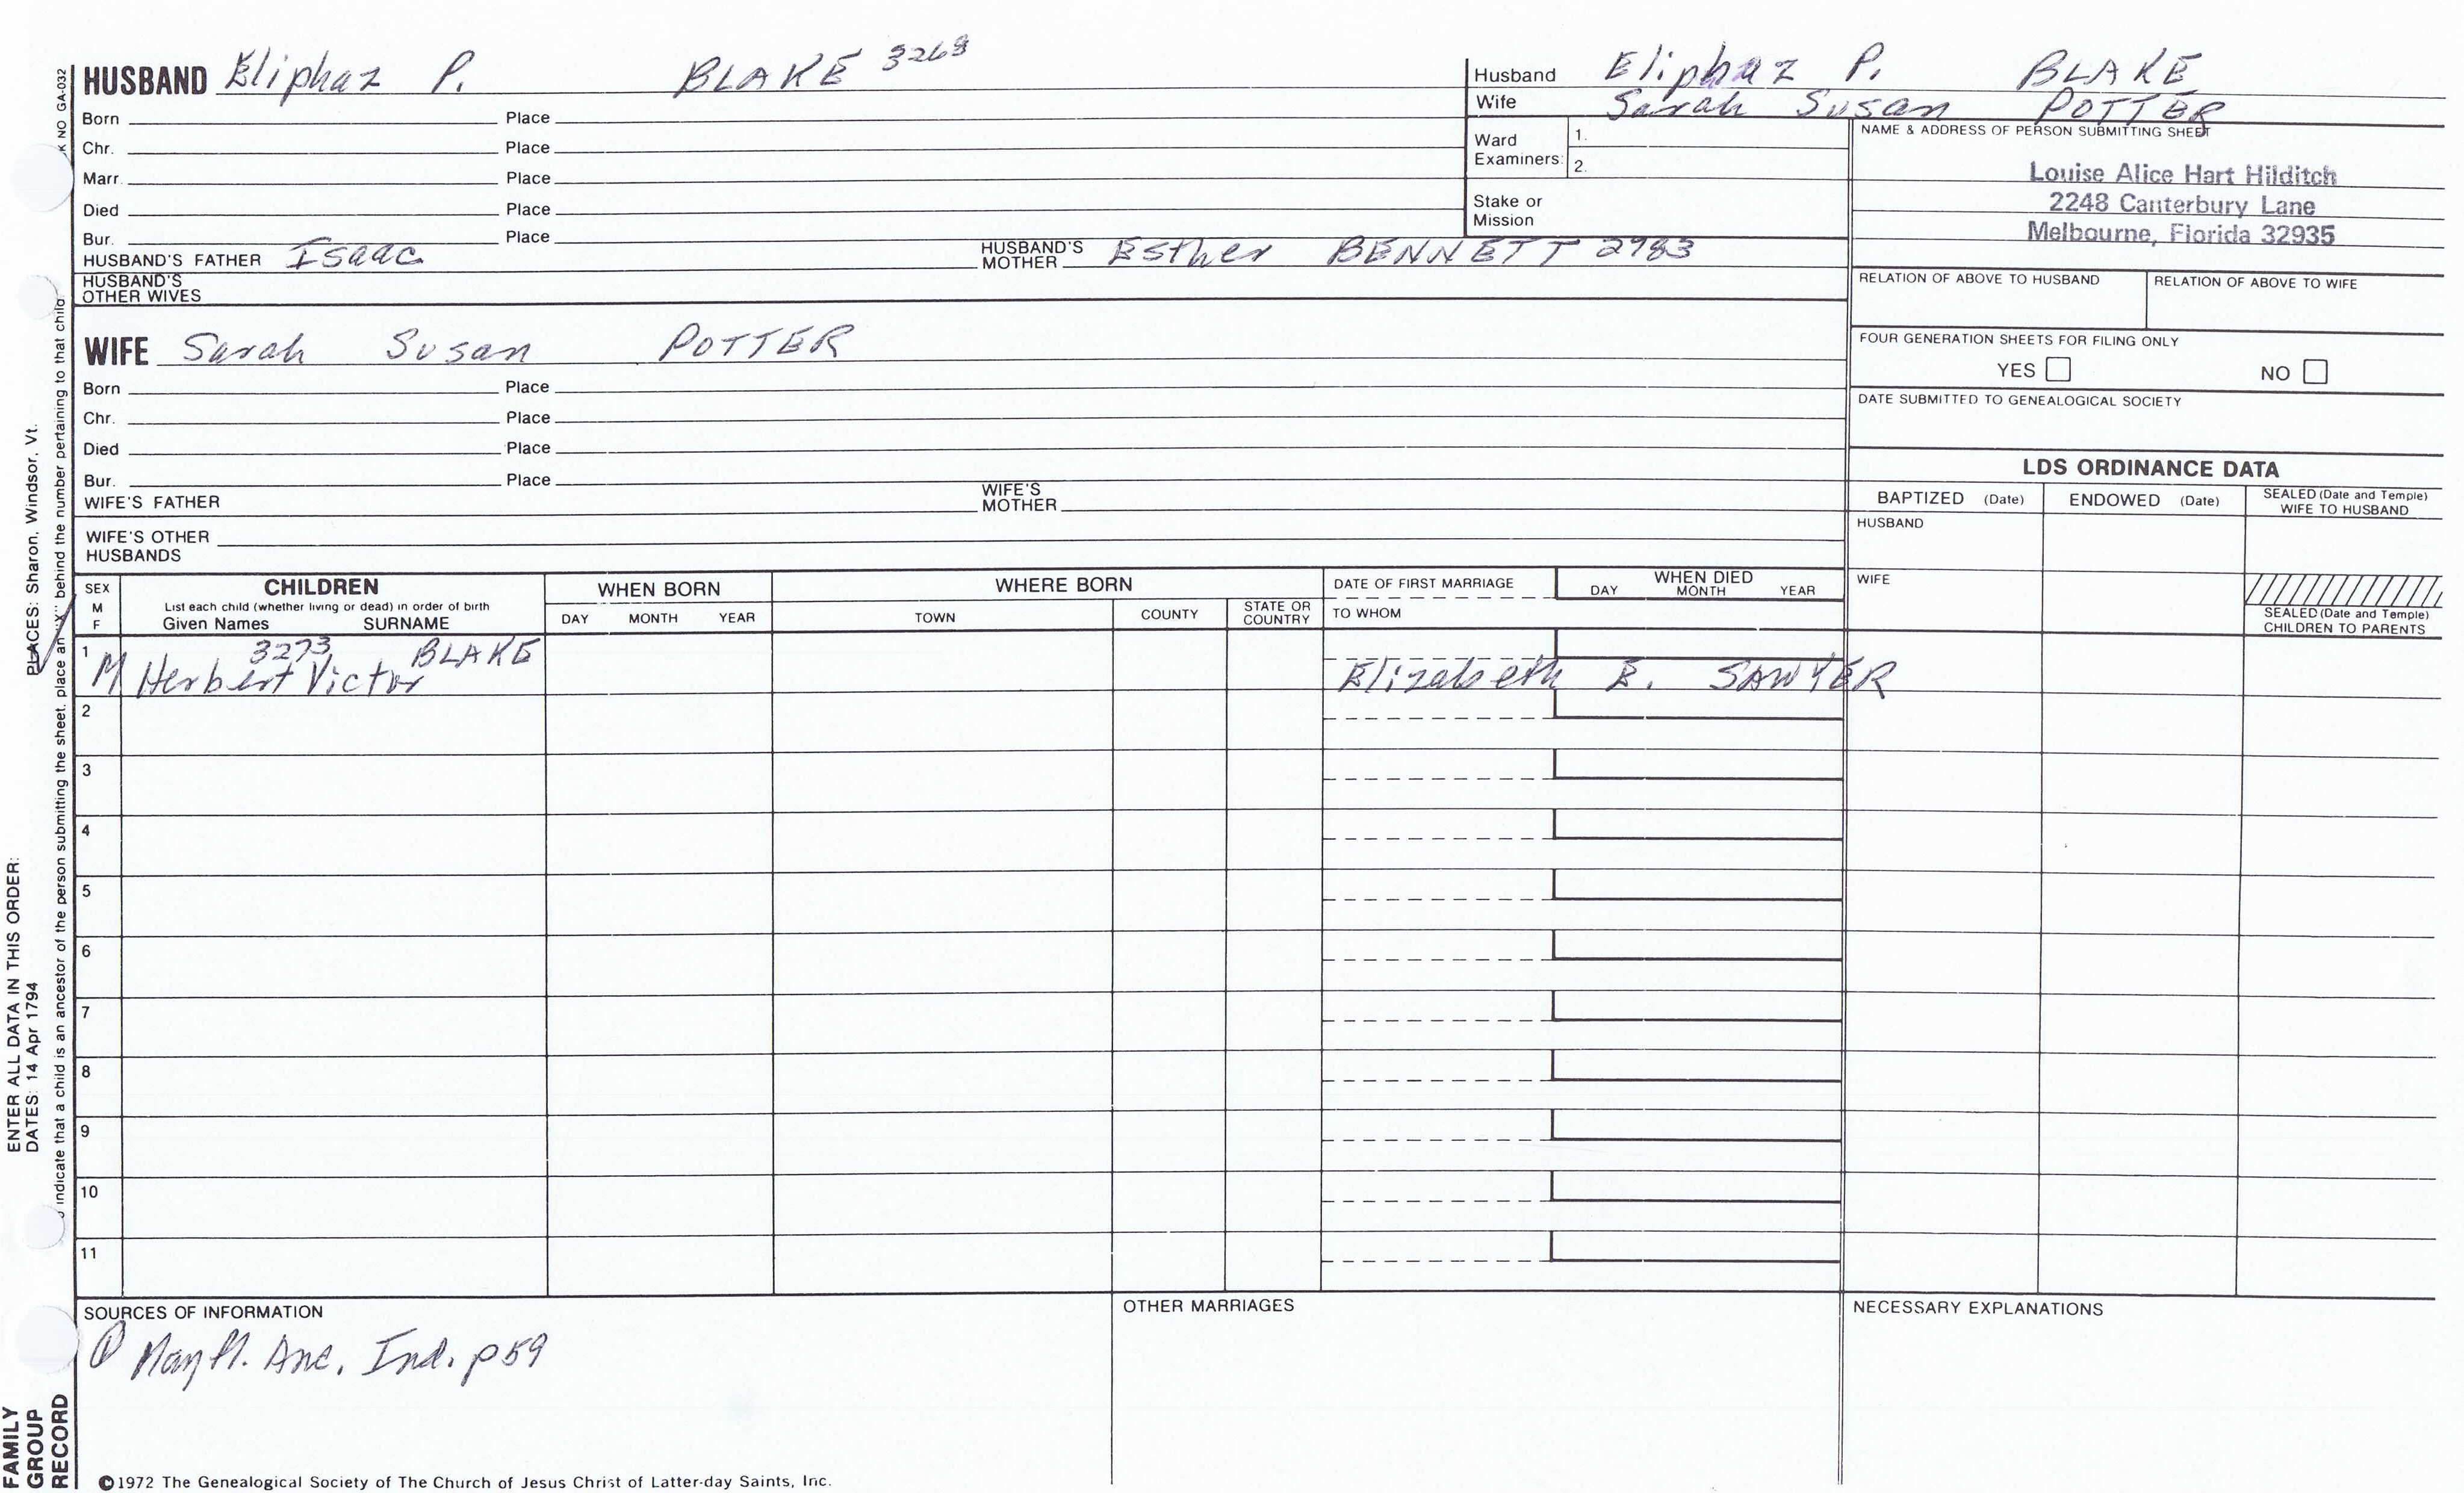 HUSBAND Eliphaz P. BLAKE 3268
Born Place
Chr. Place
Marr. Place
Died Place
Bur. Place
HUSBAND'S FATHER Isaac HUSBAND'S MOTHER Esther BENNETT 2983
HUSBAND'S OTHER WIVES
WIFE Sarah Susan POTTER
Born Place
Chr. Place
Died Place
Bur. Place
WIFE'S FATHER WIFE'S MOTHER
WIFE'S OTHER HUSBANDS
Husband Eliphaz P. BLAKE
Wife Sarah Susan POTTER
Ward Examiners: 1.
2.
Stake or Mission
NAME & ADDRESS OF PERSON SUBMITTING SHEET
Louise Alice Hart Hilditch
2248 Canterbury Lane
Melbourne, Florida 32935
RELATION OF ABOVE TO HUSBAND RELATION OF ABOVE TO WIFE
FOUR GENERATION SHEETS FOR FILING ONLY
YES NO
DATE SUBMITTED TO GENEALOGICAL SOCIETY
LDS ORDINANCE DATA
BAPTIZED (Date) ENDOWED (Date) SEALED (Date and Temple) WIFE TO HUSBAND
HUSBAND
WIFE
SEALED (Date and Temple) CHILDREN TO PARENTS
SEX M F
CHILDREN
List each child (whether living or dead) in order of birth
Given Names SURNAME
WHEN BORN
DAY MONTH YEAR
WHERE BORN
TOWN COUNTY STATE OR COUNTRY
DATE OF FIRST MARRIAGE
TO WHOM
WHEN DIED
DAY MONTH YEAR
1 3273 BLAKE
M Herbert Victor Elizabeth E. SAWYER
2
3
4
5
6
7
8
9
10
11
SOURCES OF INFORMATION
① Mayfl. Anc. Ind. p59
OTHER MARRIAGES
NECESSARY EXPLANATIONS
©1972 The Genealogical Society of The Church of Jesus Christ of Latter-day Saints, Inc.
FAMILY
GROUP
RECORD
ENTER ALL DATA IN THIS ORDER:
DATES: 14 Apr 1794 PLACES: Sharon, Windsor, Vt.
indicate that a child is an ancestor of the person submitting the sheet, place an "X" behind the number pertaining to that child
NO GA-032